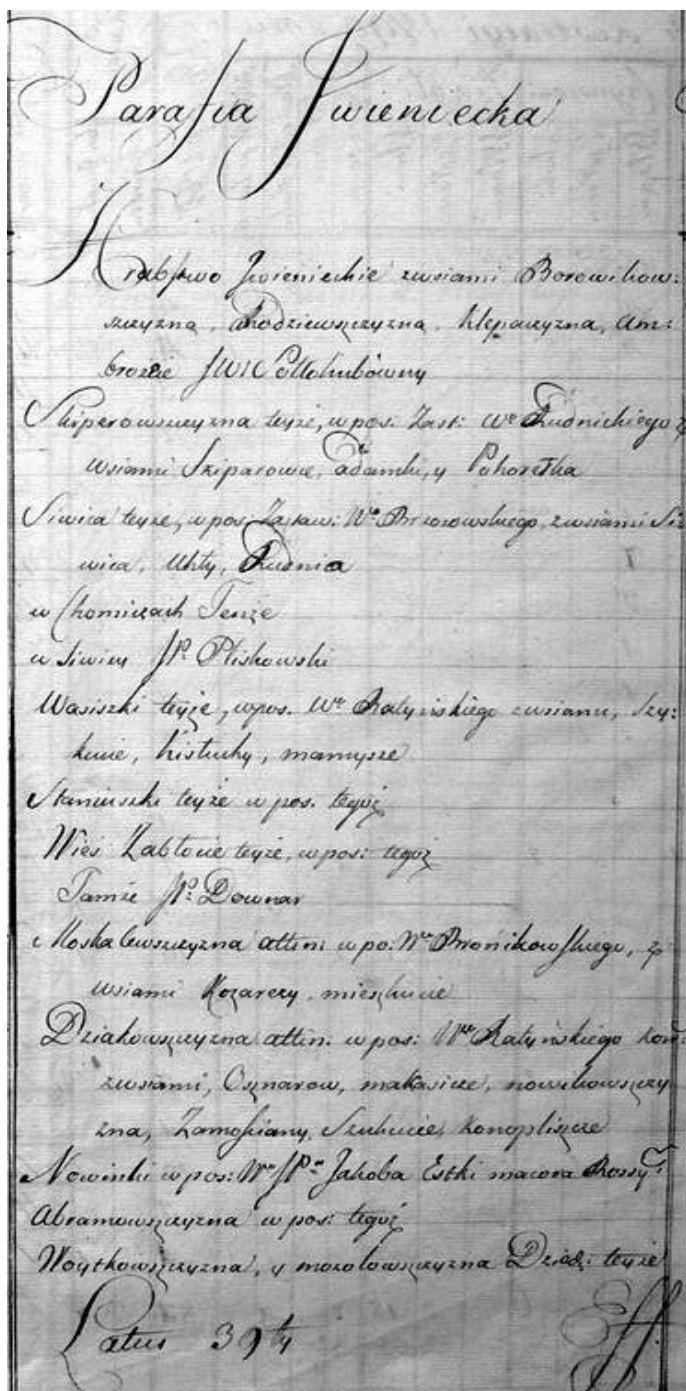 Parafia Iwieniecka
Hrabstwo Iwienieckie zwsiami Borowikow:
szczyzną, Rodziewszczyzną, Klepaczyzna, Am:
broże JW: Sołłohubówny
Skiperowszczyzna teyże, w pos: Zast: Wo Rudnickiego z
wsiami Skiparowce, adamki, y Pohorełka
Siwica teyże, w pos: Zastaw: Wo Brzozowskiego, zwsiami Si:
wica, Uhły, Rudnia
w Chomiczach Tenże
w Siwicy JP. Pliskowski
Wasiszki teyże, w pos. Wo Ratyńskiego zwsiami, Szy:
kucie, Kistuchy, mamysze
Staniuszki teyże w pos. tegoż
Wieś Zabłocie teyże, w pos: tegoż
Tamże JP. Downar
Moskalewszczyzna attin: w po: Wo Bronikowskiego, z
wsiami Kozarezy, mieszkucie
Dziakowszczyzna attin. w pos: Wo Ratyńskiego
zwsiami, Osznarow, makasicze, nowikowszczy
zna, Zamościany, Szukucie, Konopliszcze
Nowinki w pos: Wo JPa Jakoba Estki maiora Rossy:
Abramowszczyzna w pos: tegoż
Woytkowszczyzna, y mozolowszczyzna Dziedz: teyże
Latus 39ty